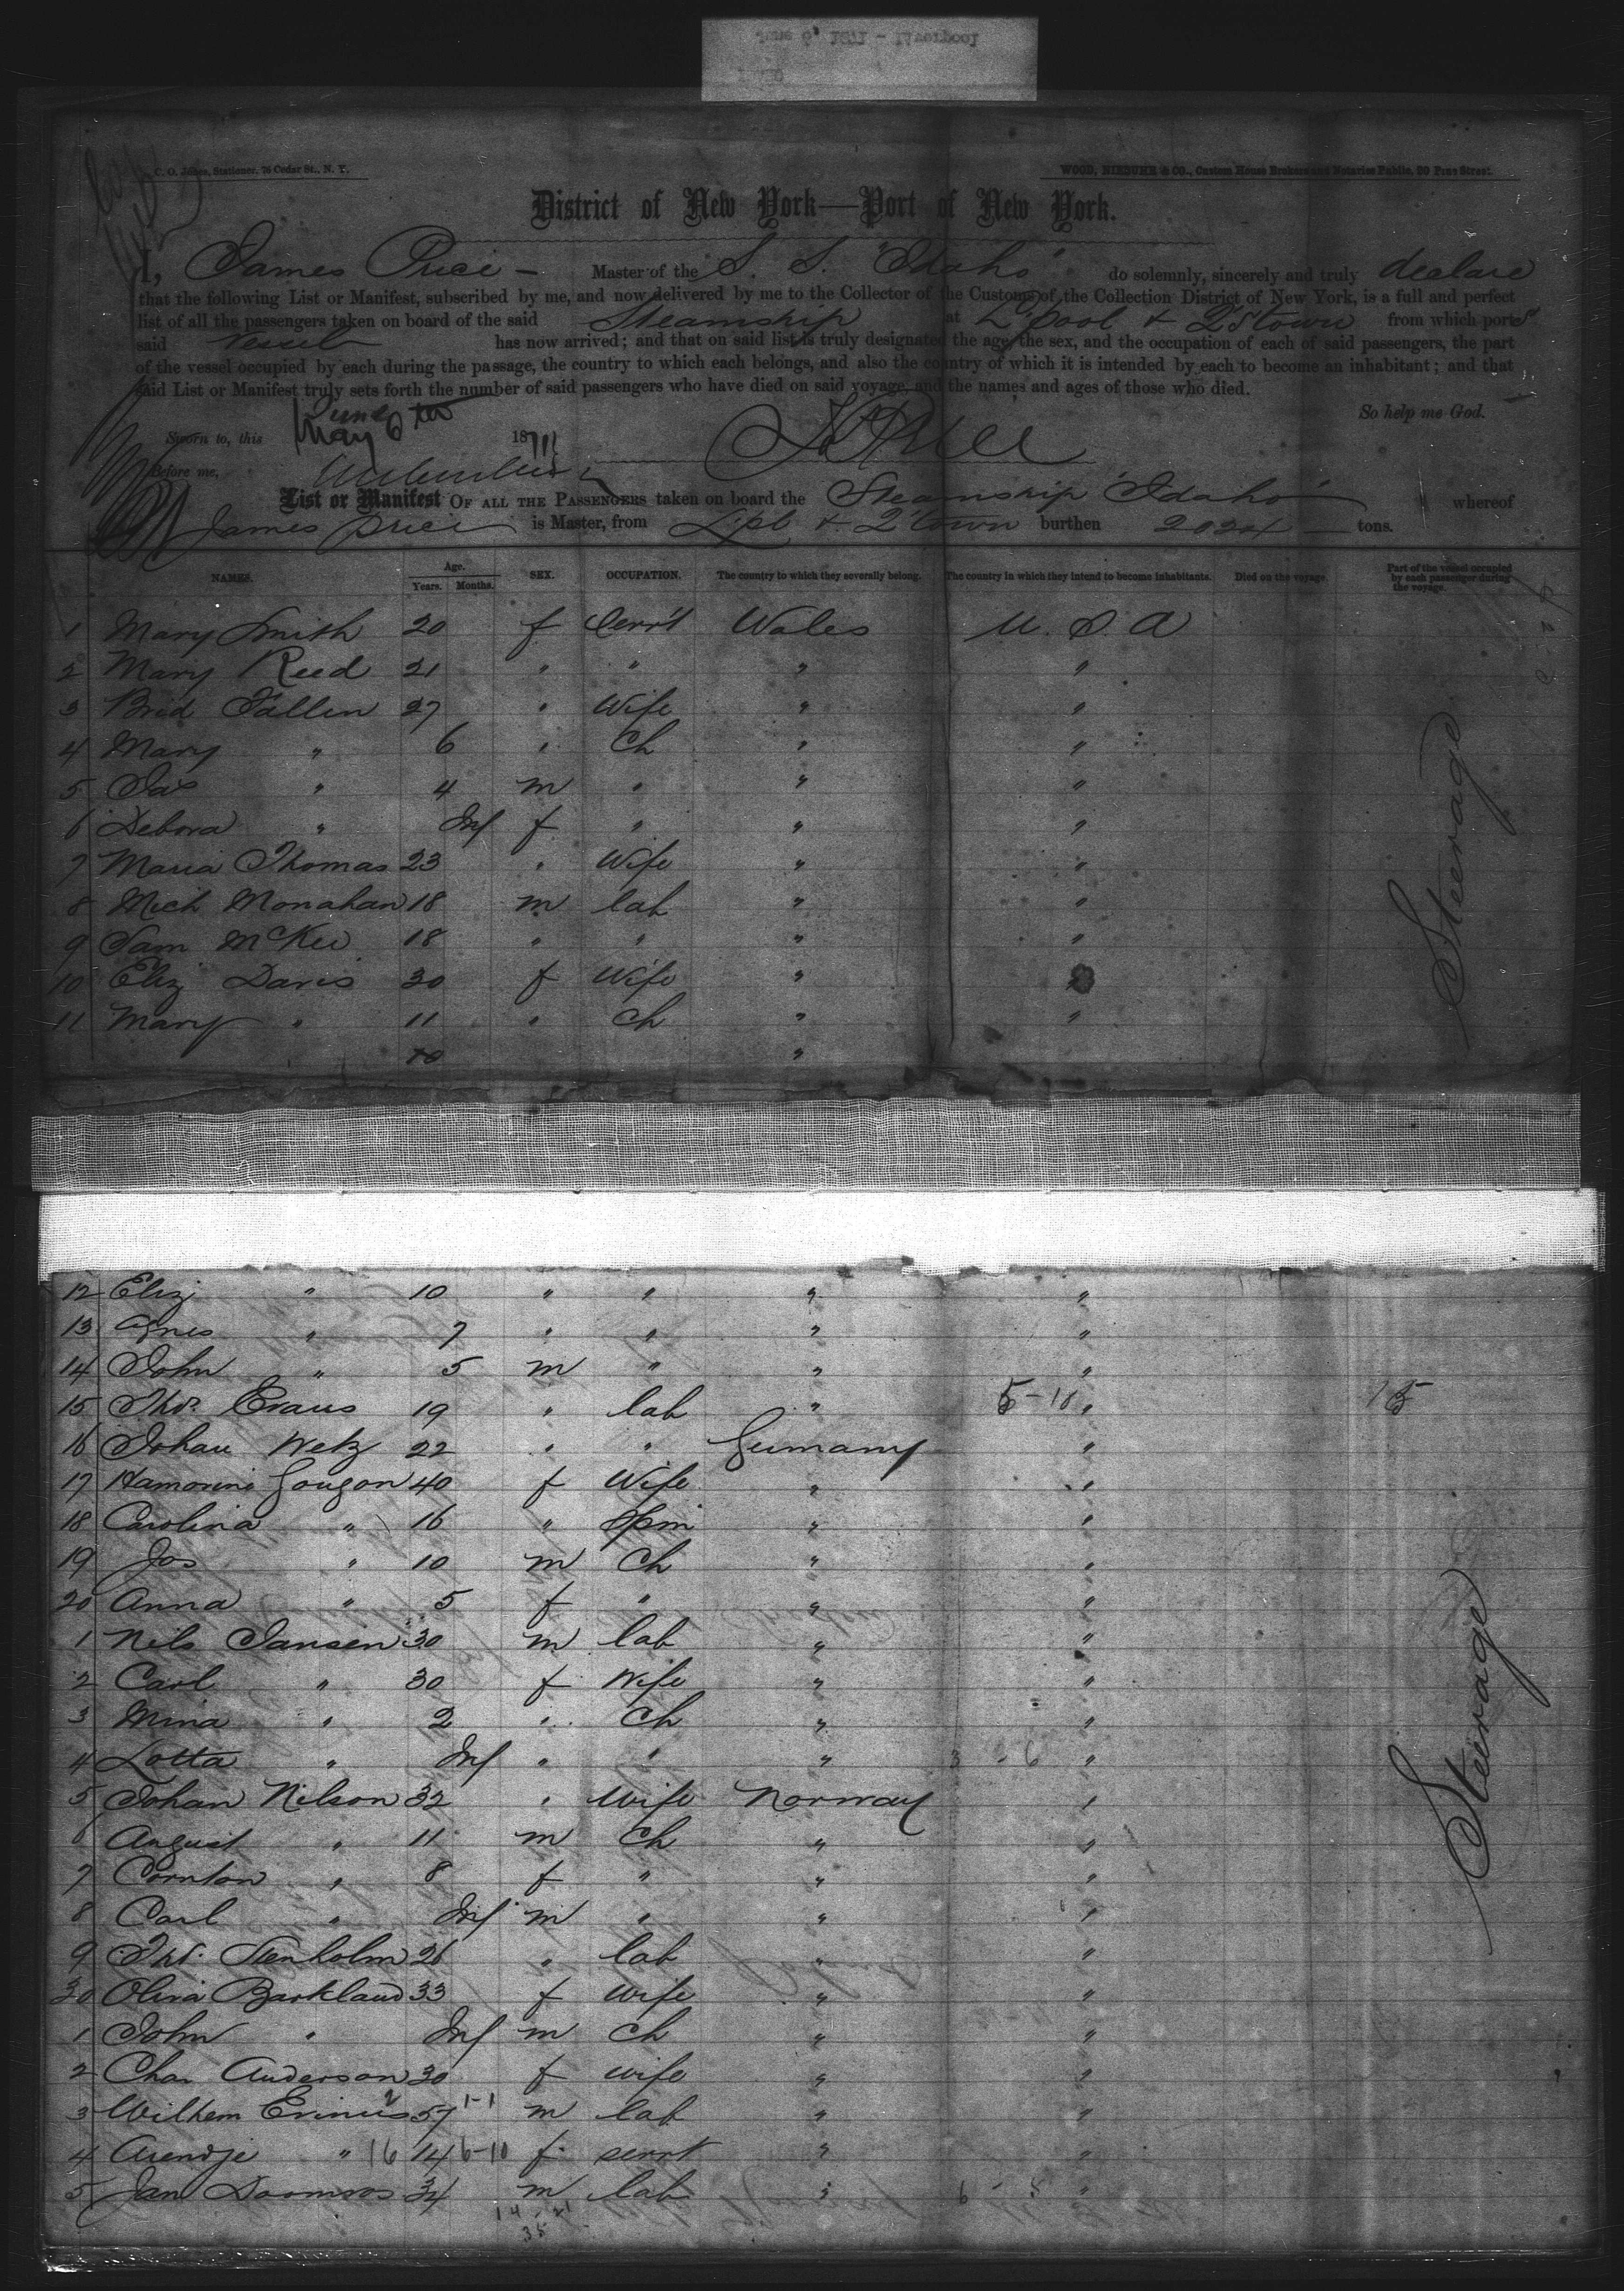 June 6, 1871 - Liverpool
C. O. Jones, Stationer, 76 Cedar St., N. Y.
WOOD, NIEBUHR & CO., Custom House Brokers and Notaries Public, 20 Pine Street.
District of New York—Port of New York.
I, James Price - Master of the S. S. "Idaho" do solemnly, sincerely and truly declare
that the following List or Manifest, subscribed by me, and now delivered by me to the Collector of the Customs of the Collection District of New York, is a full and perfect
list of all the passengers taken on board of the said Steamship at L'pool & Q'stown from which ports
said vessel has now arrived; and that on said list is truly designated the age, the sex, and the occupation of each of said passengers, the part
of the vessel occupied by each during the passage, the country to which each belongs, and also the country of which it is intended by each to become an inhabitant; and that
said List or Manifest truly sets forth the number of said passengers who have died on said voyage, and the names and ages of those who died.
So help me God.
Sworn to, this May June 6th 1871
J. Price
Before me,
List or Manifest OF ALL THE PASSENGERS taken on board the Steamship "Idaho" whereof
James Price is Master, from Lpl & Q'town burthen tons.
NAMES. Age. Years. Months. SEX. OCCUPATION. The country to which they severally belong. The country in which they intend to become inhabitants. Died on the voyage. Part of the vessel occupied by each passenger during the voyage.
1 Mary Smith 20 f Serv't Wales U. S. A
2 Mary Reed 21 " " " "
3 Brid Fallen 27 " Wife " "
4 Mary " 6 " Ch " "
5 Jas " 4 m " " "
6 Debora " Inf f " " "
7 Maria Thomas 23 " Wife " "
8 Mich Monahan 18 m lab " "
9 Sam McKee 18 " " " "
10 Eliz Davis 30 f Wife " "
11 Mary " 11 " Ch " "
10 "
Steerage
12 Eliz " 10 " " " "
13 Agnes " 7 " " " "
14 John " 5 m " " "
15 Thos. Evans 19 " lab " 5-10 " 15
16 Johan Wetz 22 " " Germany "
17 Gougon 40 f Wife " "
18 Carolina " 16 " Spin " "
19 Jos " 10 m Ch " "
20 Anna " 5 f " " "
1 Nils Jansen 30 m lab " "
2 Carl " 30 f Wife " "
3 Mina " 2 " Ch " "
4 Lotta " Inf " " " 3 - 6 "
5 Johan Nilson 32 " Wife Norway "
6 August " 11 m Ch " "
7 " 8 f " " "
8 Carl " Inf m " " "
9 Thos. Stenholm 26 " lab " "
30 Olivia Barkland 33 f Wife " "
1 John " Inf m Ch " "
2 Char Anderson 30 f wife " "
3 Wilhem 57 1-1 m lab " "
4 Arendje " 16 14 6-10 f servt " "
5 Jan Doomsos 34 m lab " 6 - 5 "
14 . 21
35
Steerage